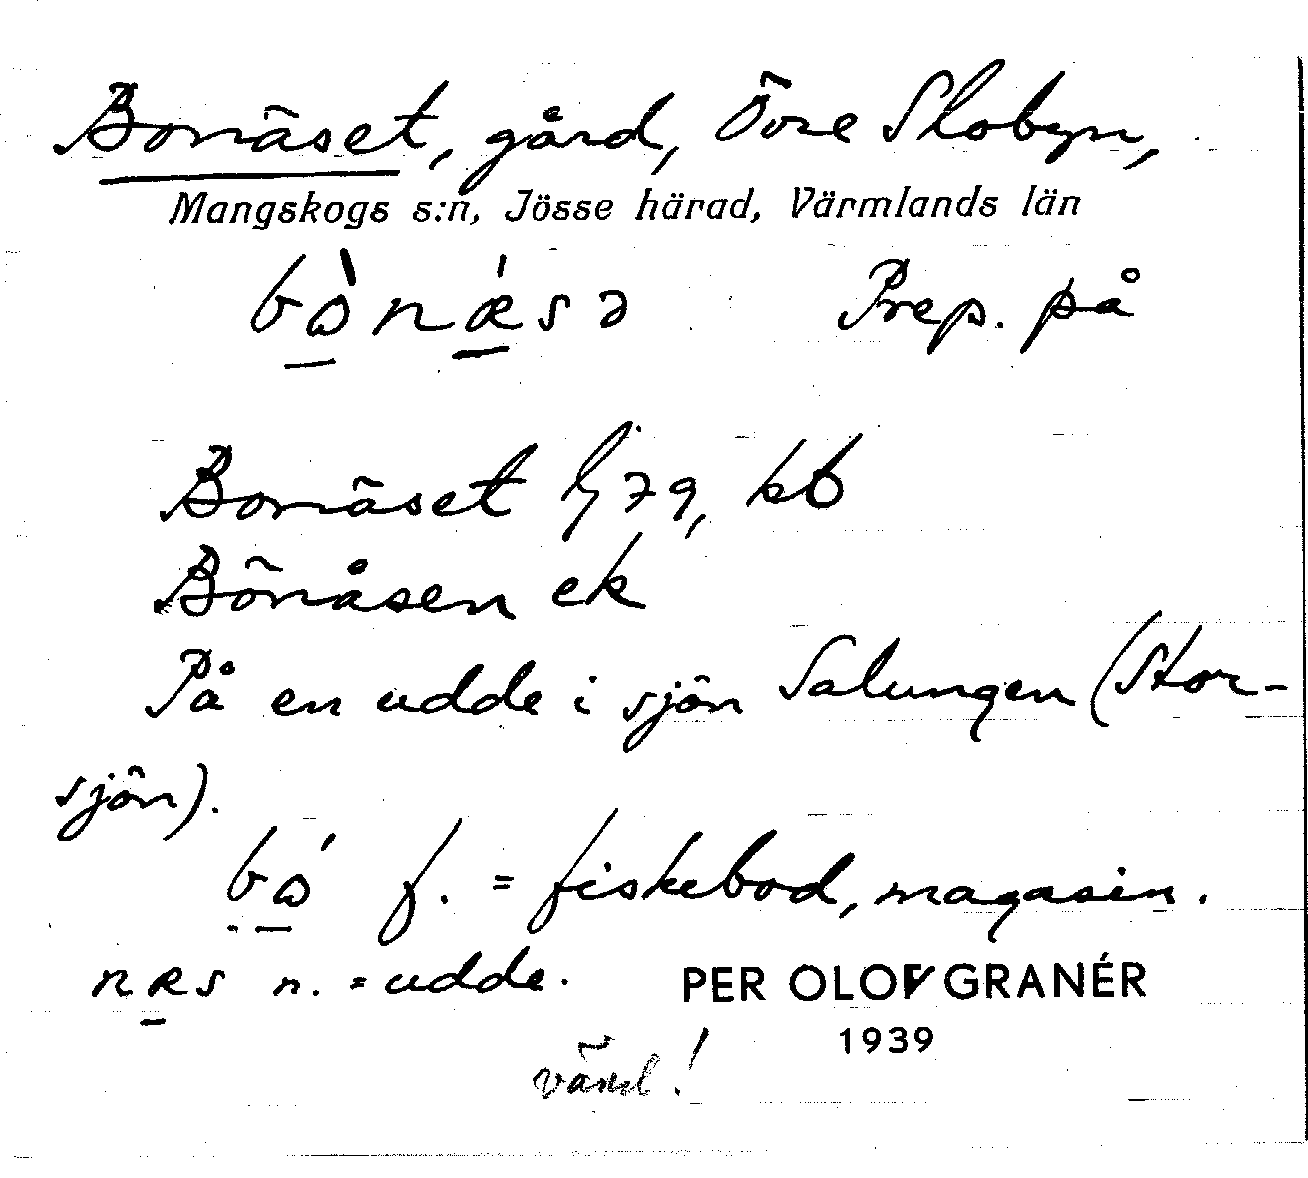 Bonäset, gård, Övre Slobyn,
Mangskogs s:n, Jösse härad, Värmlands län
bὼnǽsə Prep. på
Bonäset Lj 79, kb
Bönåsen ek
På en udde i sjön Salungen (Stor-
sjön).
bώ f. = fiskebod, magasin.
næs n. = udde.
PER OLOF GRANÉR
1939
vänd!